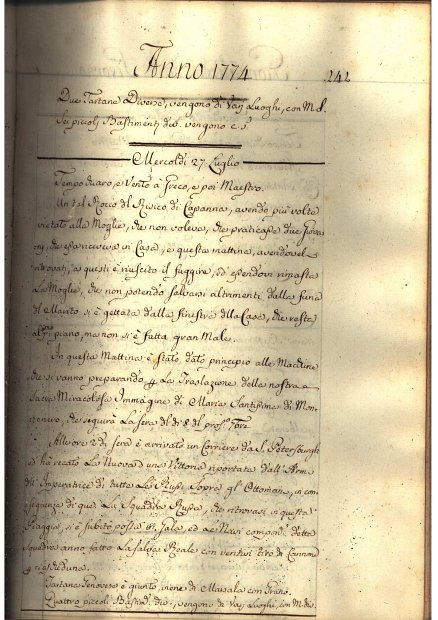 Anno 1774
242
Due Tartane Diverse, vengono di Varj Luoghi, con M. d.
Sei piccoli Bastimenti div. vengono c. s.
Mercoldì 27 Luglio
Tempo chiaro, e Vento à Greco, e poi Maestro.
Un tal Rocco del Risico di Capanna, avendo più volte
vietato alla Moglie, che non voleva, che praticasse due Giova
ni, che essa riceveva in Casa, e questa mattina, avendovel
ritrovati, a questi è riuscito il fuggire, ed essendovi rimasta
La Moglie, che non potendo salvarsi altrimenti dalla furia
del Marito, si è gettata dalla finestra della Casa, che resta
piano, ma non si è fatta gran Male.
In questa Mattina è stato dato principio alle Macchine
che si vanno preparando La Traslazione della nostra
Sacra Miracolosa Immagine di Maria Santissima di Mon
tenero, che seguirà La sera del dì 8 del
All'ore 2 di sera è arrivato un Corriere da S. Peterburgh
ed ha recato La Nuova d'una Vittoria riportata dall'Arme
dell'Imperatrice di tutte Le Russie Sopra gl'Ottomani, in con
seguenza di che La Squadra Russa, che ritrovasi in questa
Spiaggia, si è subito posta in Gala, ed Le Navi compon.ti detta
Squadra anno fatto La Salva Reale con ventun tiro di Cannon
Tartana Genovese è giunta, viene di Marsala con Grano.
Quattro piccoli Bastim. div., vengono di Varj Luoghi, con M. div.